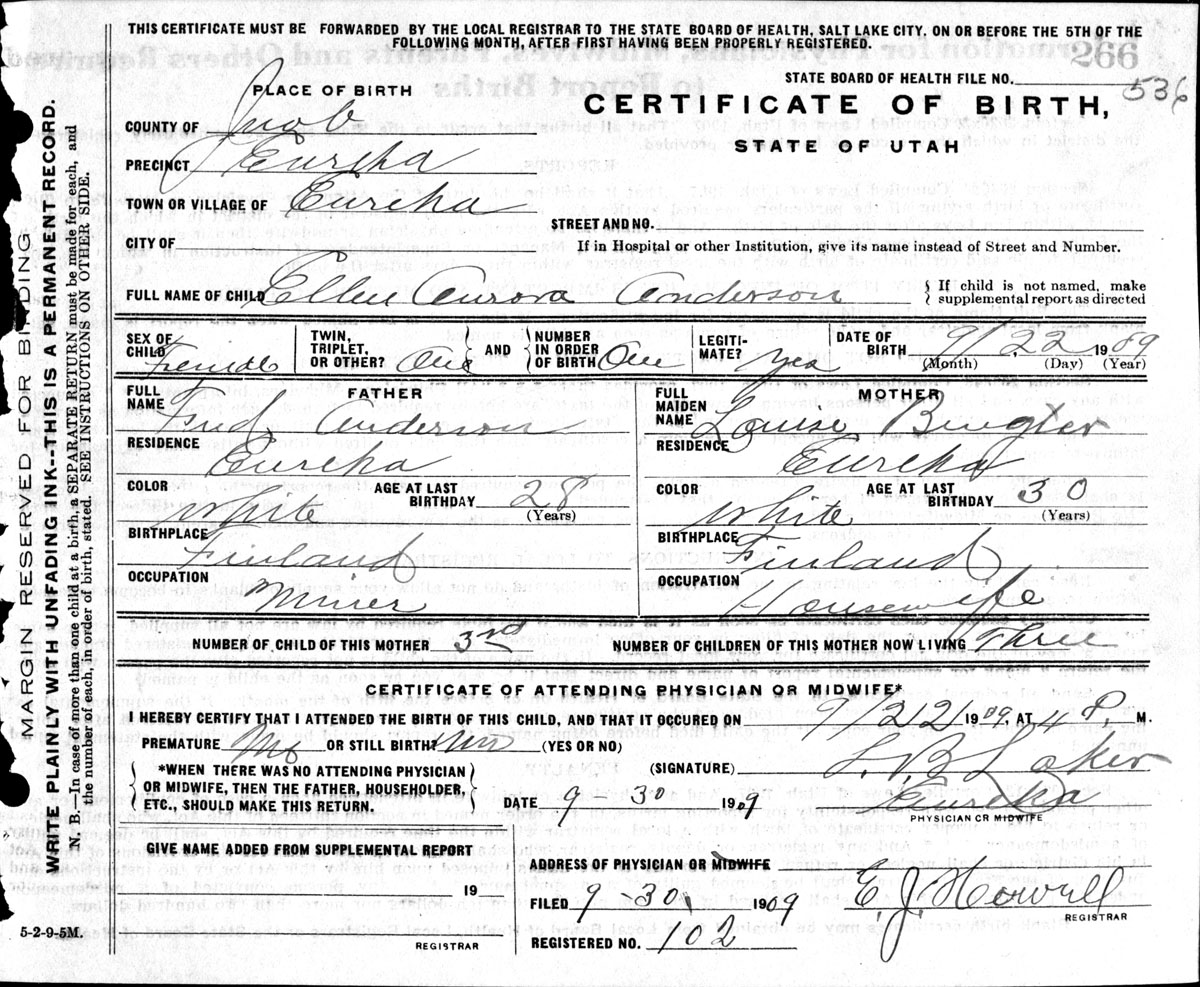 THIS CERTIFICATE MUST BE FORWARDED BY THE LOCAL REGISTRAR TO THE STATE BOARD OF HEALTH, SALT LAKE CITY, ON OR BEFORE THE 5TH OF THE
FOLLOWING MONTH, AFTER FIRST HAVING BEEN PROPERLY REGISTERED.
266
STATE BOARD OF HEALTH FILE NO. 536
PLACE OF BIRTH
CERTIFICATE OF BIRTH,
STATE OF UTAH
COUNTY OF Juab
PRECINCT Eureka
TOWN OR VILLAGE OF Eureka
STREET AND NO.
CITY OF
If in Hospital or other Institution, give its name instead of Street and Number.
FULL NAME OF CHILD Ellen Aurora Anderson
{ If child is not named, make
supplemental report as directed
SEX OF CHILD Female
TWIN, TRIPLET, OR OTHER? One
AND
NUMBER IN ORDER OF BIRTH One
LEGITIMATE? Yes
DATE OF BIRTH 9/22 1909
(Month) (Day) (Year)
FATHER
FULL NAME Fred Anderson
RESIDENCE Eureka
COLOR White
AGE AT LAST BIRTHDAY 28
(Years)
BIRTHPLACE Finland
OCCUPATION Miner
MOTHER
FULL MAIDEN NAME Louise
RESIDENCE Eureka
COLOR White
AGE AT LAST BIRTHDAY 30
(Years)
BIRTHPLACE Finland
OCCUPATION Housewife
NUMBER OF CHILD OF THIS MOTHER 3rd
NUMBER OF CHILDREN OF THIS MOTHER NOW LIVING Three
CERTIFICATE OF ATTENDING PHYSICIAN OR MIDWIFE*
I HEREBY CERTIFY THAT I ATTENDED THE BIRTH OF THIS CHILD, AND THAT IT OCCURED ON 9/22/1909, AT 4 P. M.
PREMATURE No OR STILL BIRTH No (YES OR NO)
*WHEN THERE WAS NO ATTENDING PHYSICIAN
OR MIDWIFE, THEN THE FATHER, HOUSEHOLDER,
ETC., SHOULD MAKE THIS RETURN.
(SIGNATURE) L. B. Laker
DATE 9 30 1909 Eureka
PHYSICIAN OR MIDWIFE
GIVE NAME ADDED FROM SUPPLEMENTAL REPORT
19
REGISTRAR
ADDRESS OF PHYSICIAN OR MIDWIFE
FILED 9 30, 1909 E. J. Howell
REGISTRAR
REGISTERED NO. 102
5-2-9-5M.
MARGIN RESERVED FOR BINDING
WRITE PLAINLY WITH UNFADING INK--THIS IS A PERMANENT RECORD.
N. B.—In case of more than one child at a birth, a SEPARATE RETURN must be made for each, and
the number of each, in order of birth, stated. SEE INSTRUCTIONS ON OTHER SIDE.